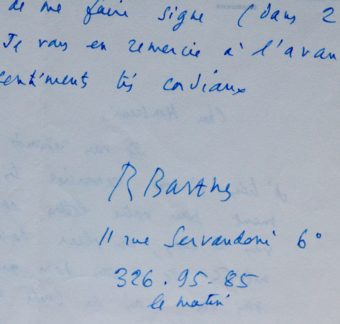 de me faire signe (dans 2
Je vous en remercie à l'avan
sentiments très cordiaux
R Barthes
11 rue Servandoni 6°
326.95-85
le matin